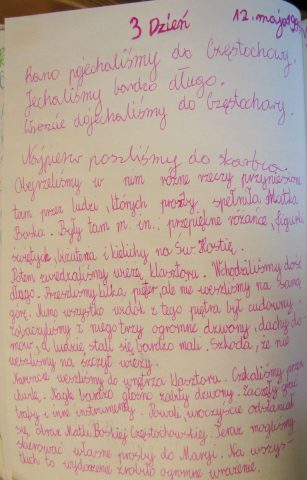 3 Dzień
12. maja
Rano pojechaliśmy do Częstochowy.
Jechaliśmy bardzo długo.
Wreszcie dojechaliśmy do Częstochowy.
Najpierw poszliśmy do skarbca.
Obejrzeliśmy w nim różne rzeczy przyniesione
tam przez ludzi, których prośby spełniła Matka
Boska. Były tam m. in. przepiękne różańce, figurki
świętych, biżuteria i kielichy na Św. Hostię.
Potem zwiedzaliśmy wieżę klasztoru. Wchodziliśmy dość
długo. Przeszliśmy kilka pięter, ale nie weszliśmy na samą
górę. Mimo wszystko widok z tego piętra był cudowny.
Zobaczyliśmy z niego trzy ogromne dzwony, dachy do-
mów, a ludzie stali się bardzo mali. Szkoda, że nie
weszliśmy na szczyt wieży.
Nareszcie weszliśmy do wnętrza klasztoru. Czekaliśmy przez
chwilę. Nagle bardzo głośno zabiły dzwony. Zaczęły grać
trąby i inne instrumenty. Powoli, uroczyście odsłaniał
się obraz Matki Boskiej Częstochowskiej. Teraz mogliśmy
skierować własne prośby do Maryi. Na wszys-
tkich to wydarzenie zrobiło ogromne wrażenie.